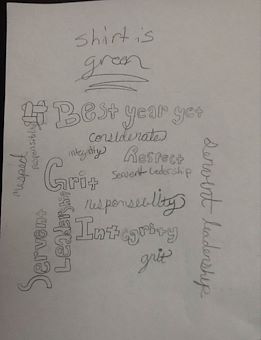 shirt is
green
# Best year yet
considerate
integrity
Respect
servant leadership
Grit
responsibility
Integrity
grit
respect
responsibility
Servant
Leadership
servant leadership